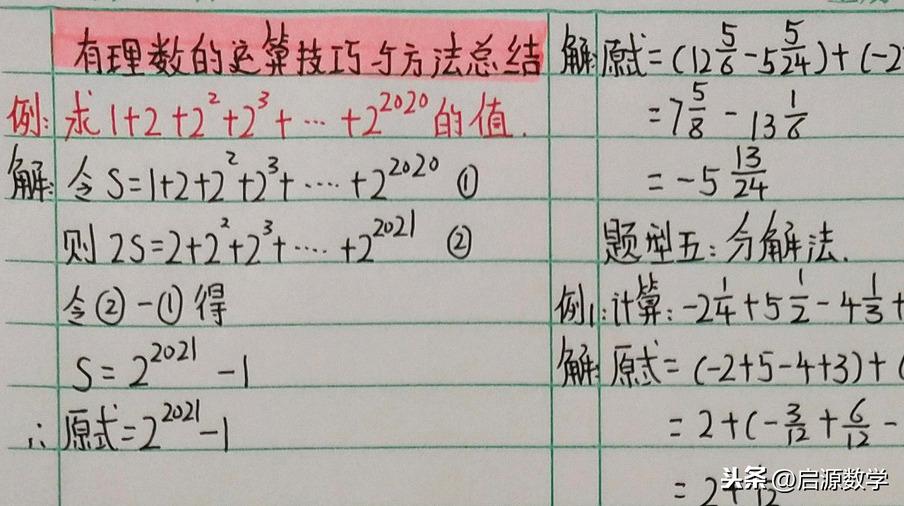 有理数的运算技巧与方法总结
例: 求1+2+2²+2³+…+2²⁰²⁰的值.
解: 令S=1+2+2²+2³+…+2²⁰²⁰ ①
则 2S=2+2²+2³+…+2²⁰²¹ ②
令②-①得
S=2²⁰²¹-1
∴原式=2²⁰²¹-1
解:原式=(12 5/6-5 5/24)+(-2
=7 5/8-13 1/6
=-5 13/24
题型五:分解法.
例1:计算:-2 1/4+5 1/2-4 1/3+
解:原式=(-2+5-4+3)+(
=2+(-3/12+6/12-
=2+
头条@启源数学